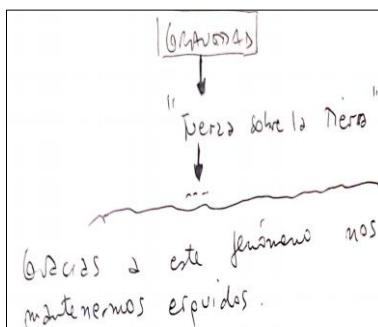 GRAVEDAD
"Fuerza sobre la Tierra"
...
Gracias a este fenómeno nos
mantenermos erguidos.